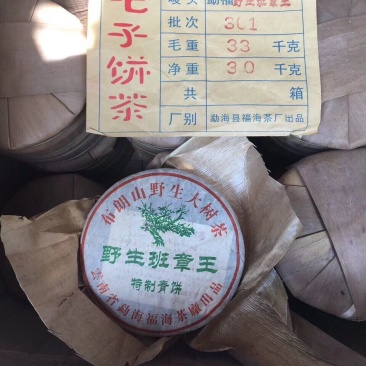 七子饼茶
唛头 勐福野生班章王
批次 301
毛重 33 千克
净重 30 千克
共 箱
厂别 勐海县福海茶厂出品
布朗山野生大树茶
野生班章王
特制青饼
云南省勐海福海茶廠出品